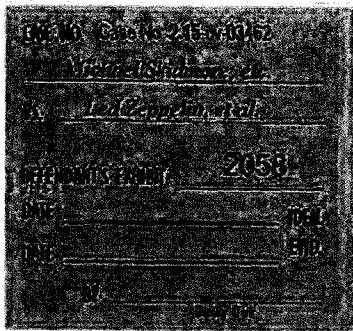 CASE NO. Case No. 2:15-cv-03462
Michael Skidmore, etc.
v. Led Zeppelin, et al.
DEFENDANT'S EXHIBIT 2058
DATE IDEN.
DATE EVID.
BY
Deputy Clerk